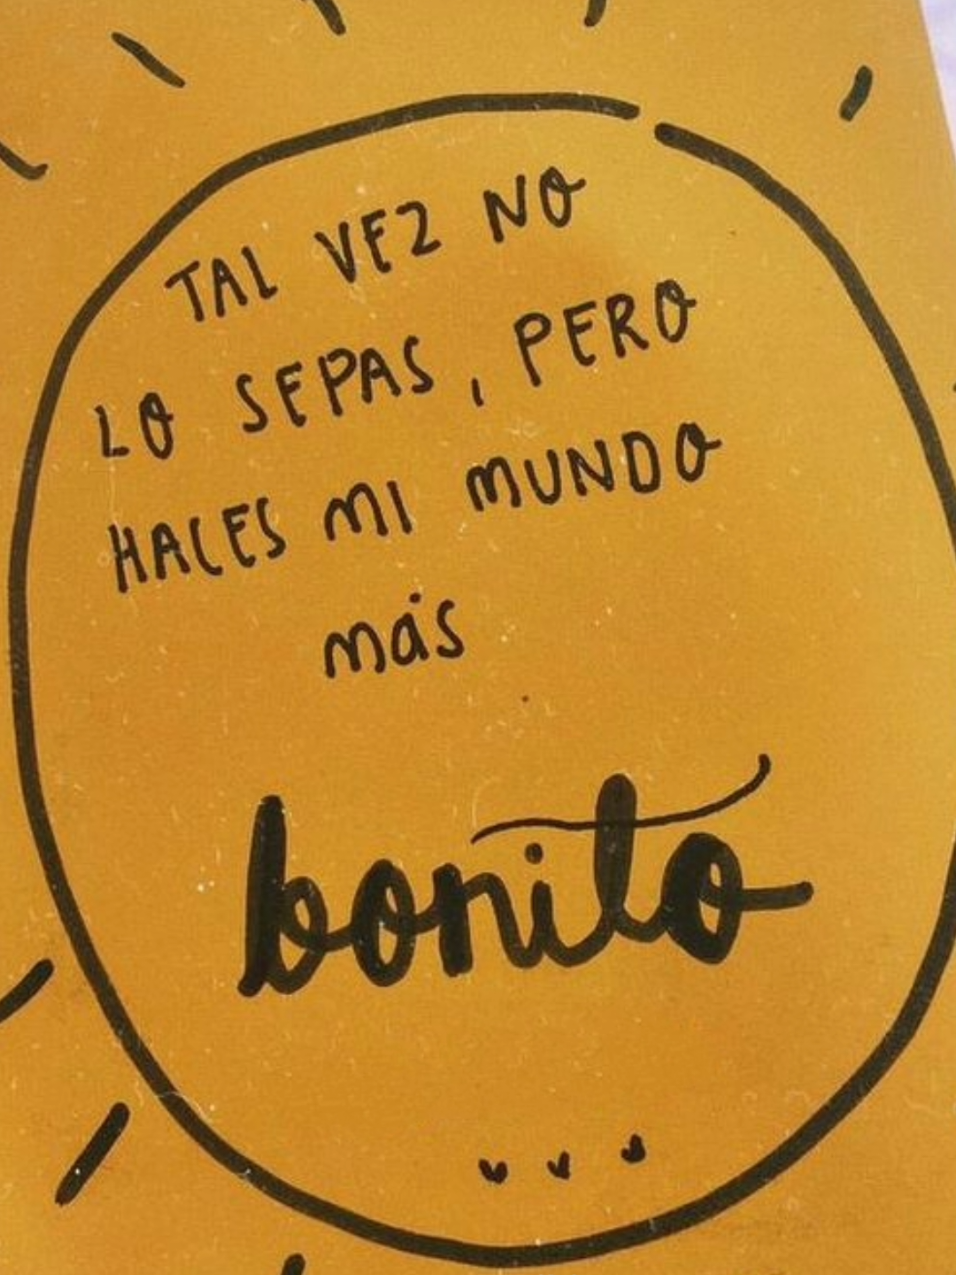 TAL VEZ NO
LO SEPAS, PERO
HACES MI MUNDO
más
bonito